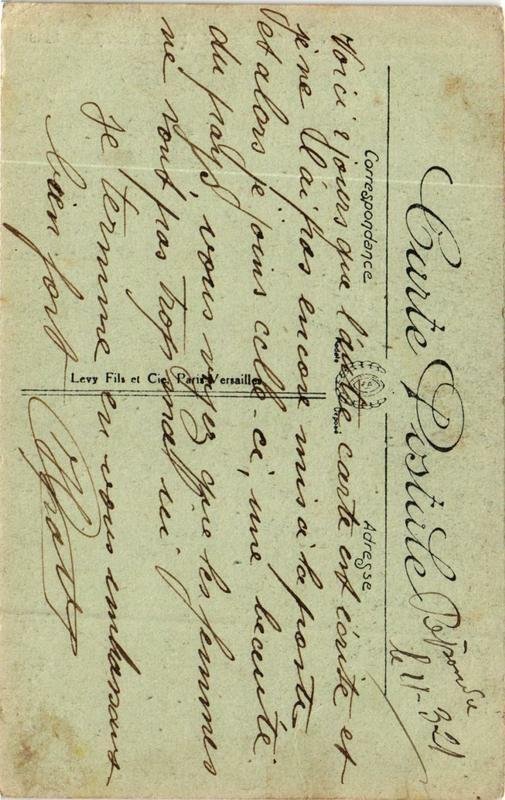 Carte Postale
le 11-3-21
Correspondance
Adresse
Voici 2 jours que l'autre carte est écrite et
je ne l'ai pas encore mis à la poste
et alors je joins celle-ci, une beauté
du pays, vous voyez que les femmes
ne sont pas trop mal ici
je termine en vous embrassant
bien fort
Levy Fils et Cie, Paris-Versailles